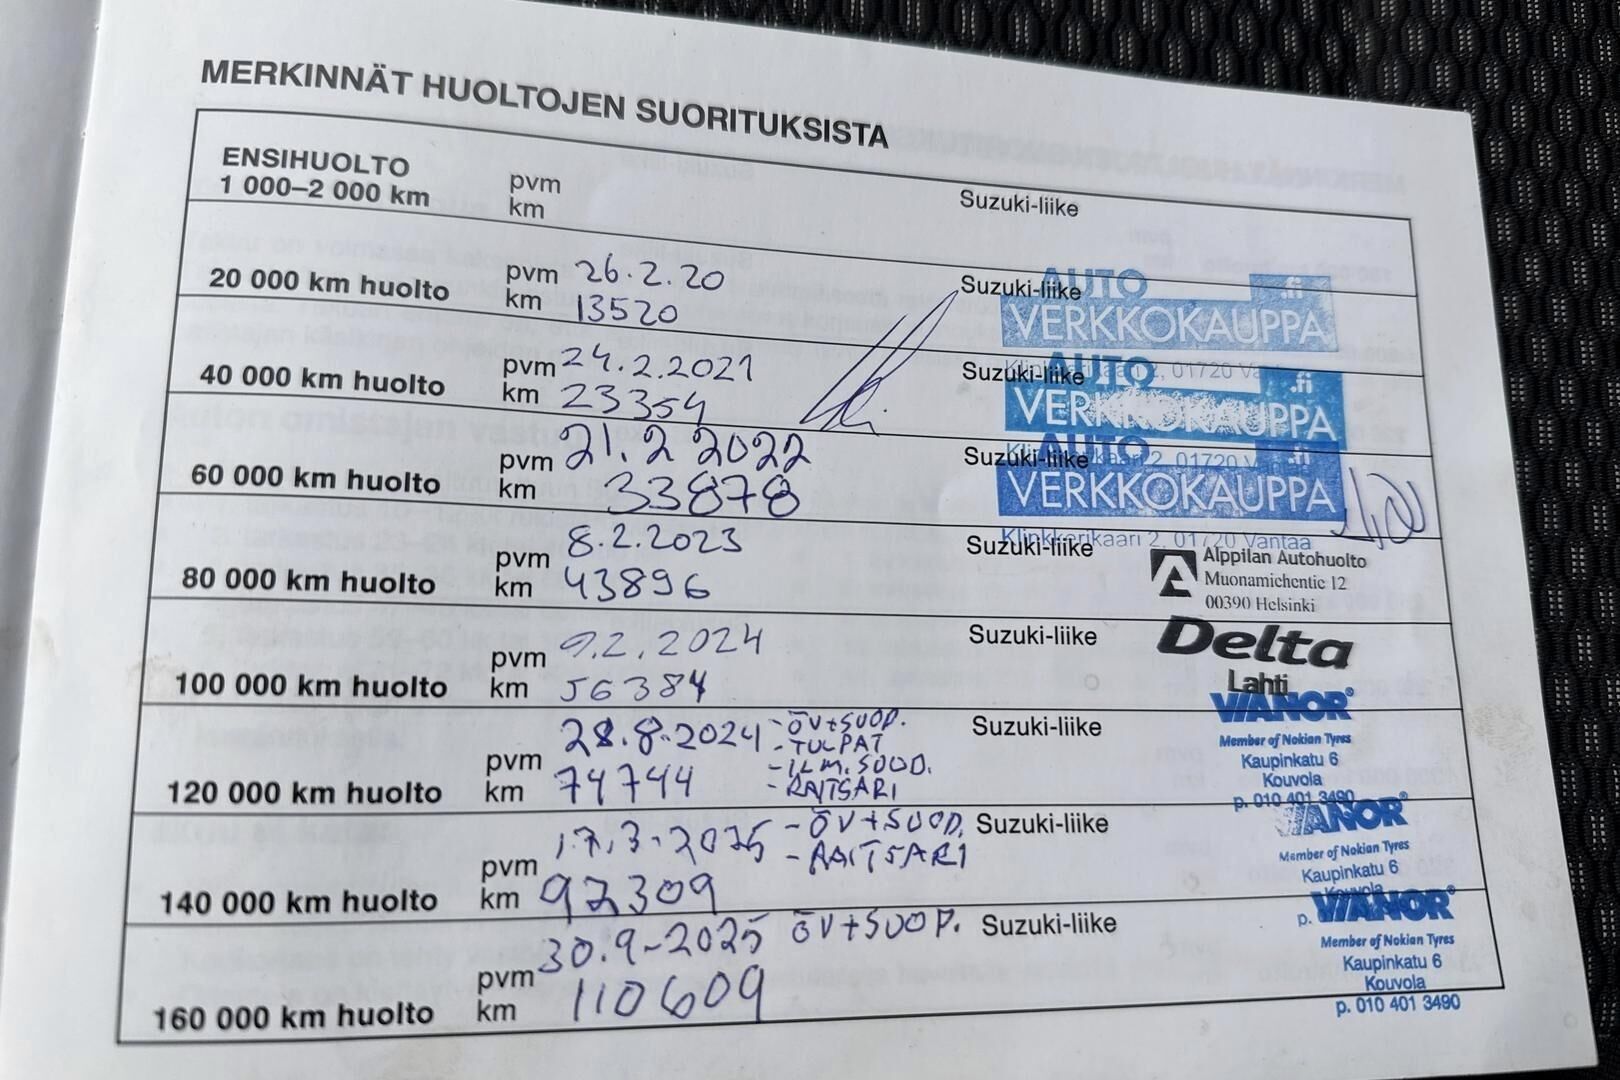 MERKINNÄT HUOLTOJEN SUORITUKSISTA
ENSIHUOLTO
1 000–2 000 km
pvm
km
Suzuki-liike
20 000 km huolto
pvm 26.2.20
km 13520
Suzuki-liike
AUTO .fi
VERKKOKAUPPA
Klinkkerikaari 2, 01720 Vantaa
40 000 km huolto
pvm 24.2.2021
km 23354
Suzuki-liike
AUTO .fi
VERKKOKAUPPA
Klinkkerikaari 2, 01720 Vantaa
60 000 km huolto
pvm 21.2 2022
km 33878
Suzuki-liike
AUTO .fi
VERKKOKAUPPA
Klinkkerikaari 2, 01720 Vantaa
80 000 km huolto
pvm 8.2.2023
km 43896
Suzuki-liike
Alppilan Autohuolto
Muonamiehentie 12
00390 Helsinki
100 000 km huolto
pvm 9.2.2024
km 56384
Suzuki-liike
Delta
Lahti
120 000 km huolto
pvm 28.8-2024
km 74744
- ÖV+SUOD.
- TULPAT
- ILM.SUOD.
- RAITSARI
Suzuki-liike
VIANOR
Member of Nokian Tyres
Kaupinkatu 6
Kouvola
p. 010 401 3490
140 000 km huolto
pvm 17.3-2025
km 92309
- ÖV+SUOD.
- RAITSARI
Suzuki-liike
VIANOR
Member of Nokian Tyres
Kaupinkatu 6
Kouvola
p.
160 000 km huolto
pvm 30.9-2025
km 110609
ÖV+SUOD.
Suzuki-liike
VIANOR
Member of Nokian Tyres
Kaupinkatu 6
Kouvola
p. 010 401 3490